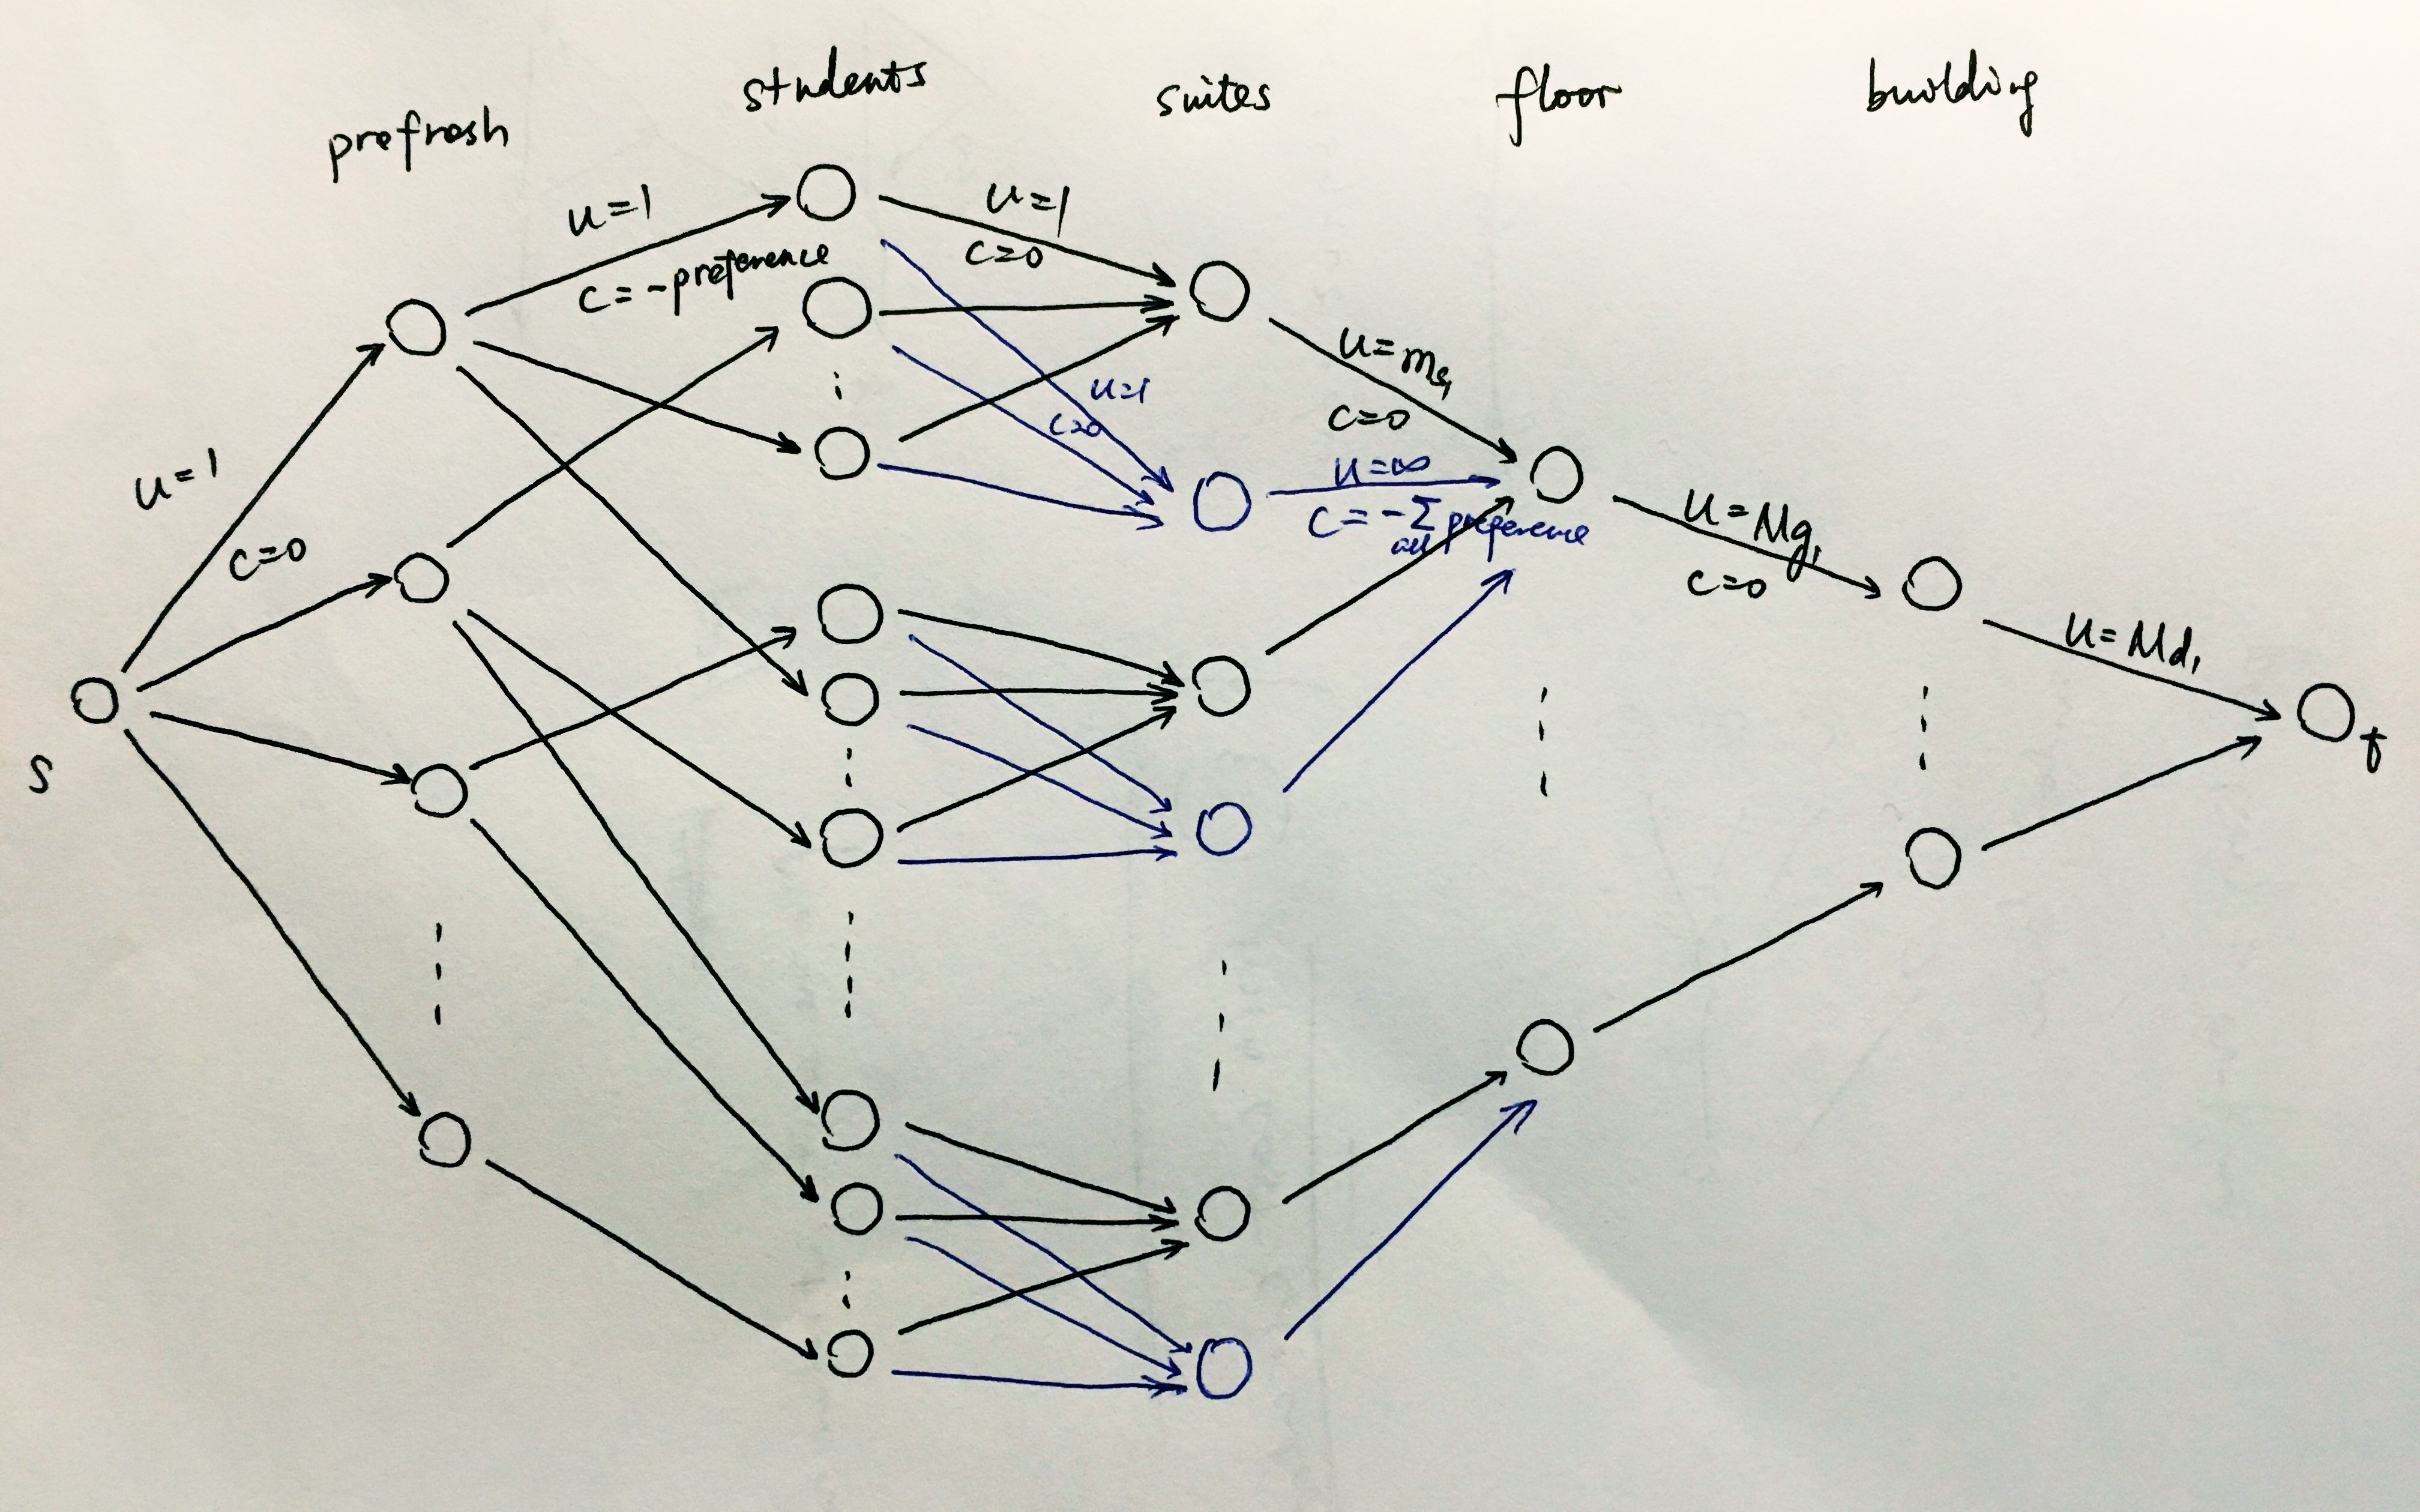 prefrosh
students
suites
floor
building
u=1
c=-preference
u=1
c=0
u=1
c=0
u=1
c=0
u=m
c=0
u=∞
c=-Σ preference
all
u=Mg₁
c=0
u=Md₁
s
t